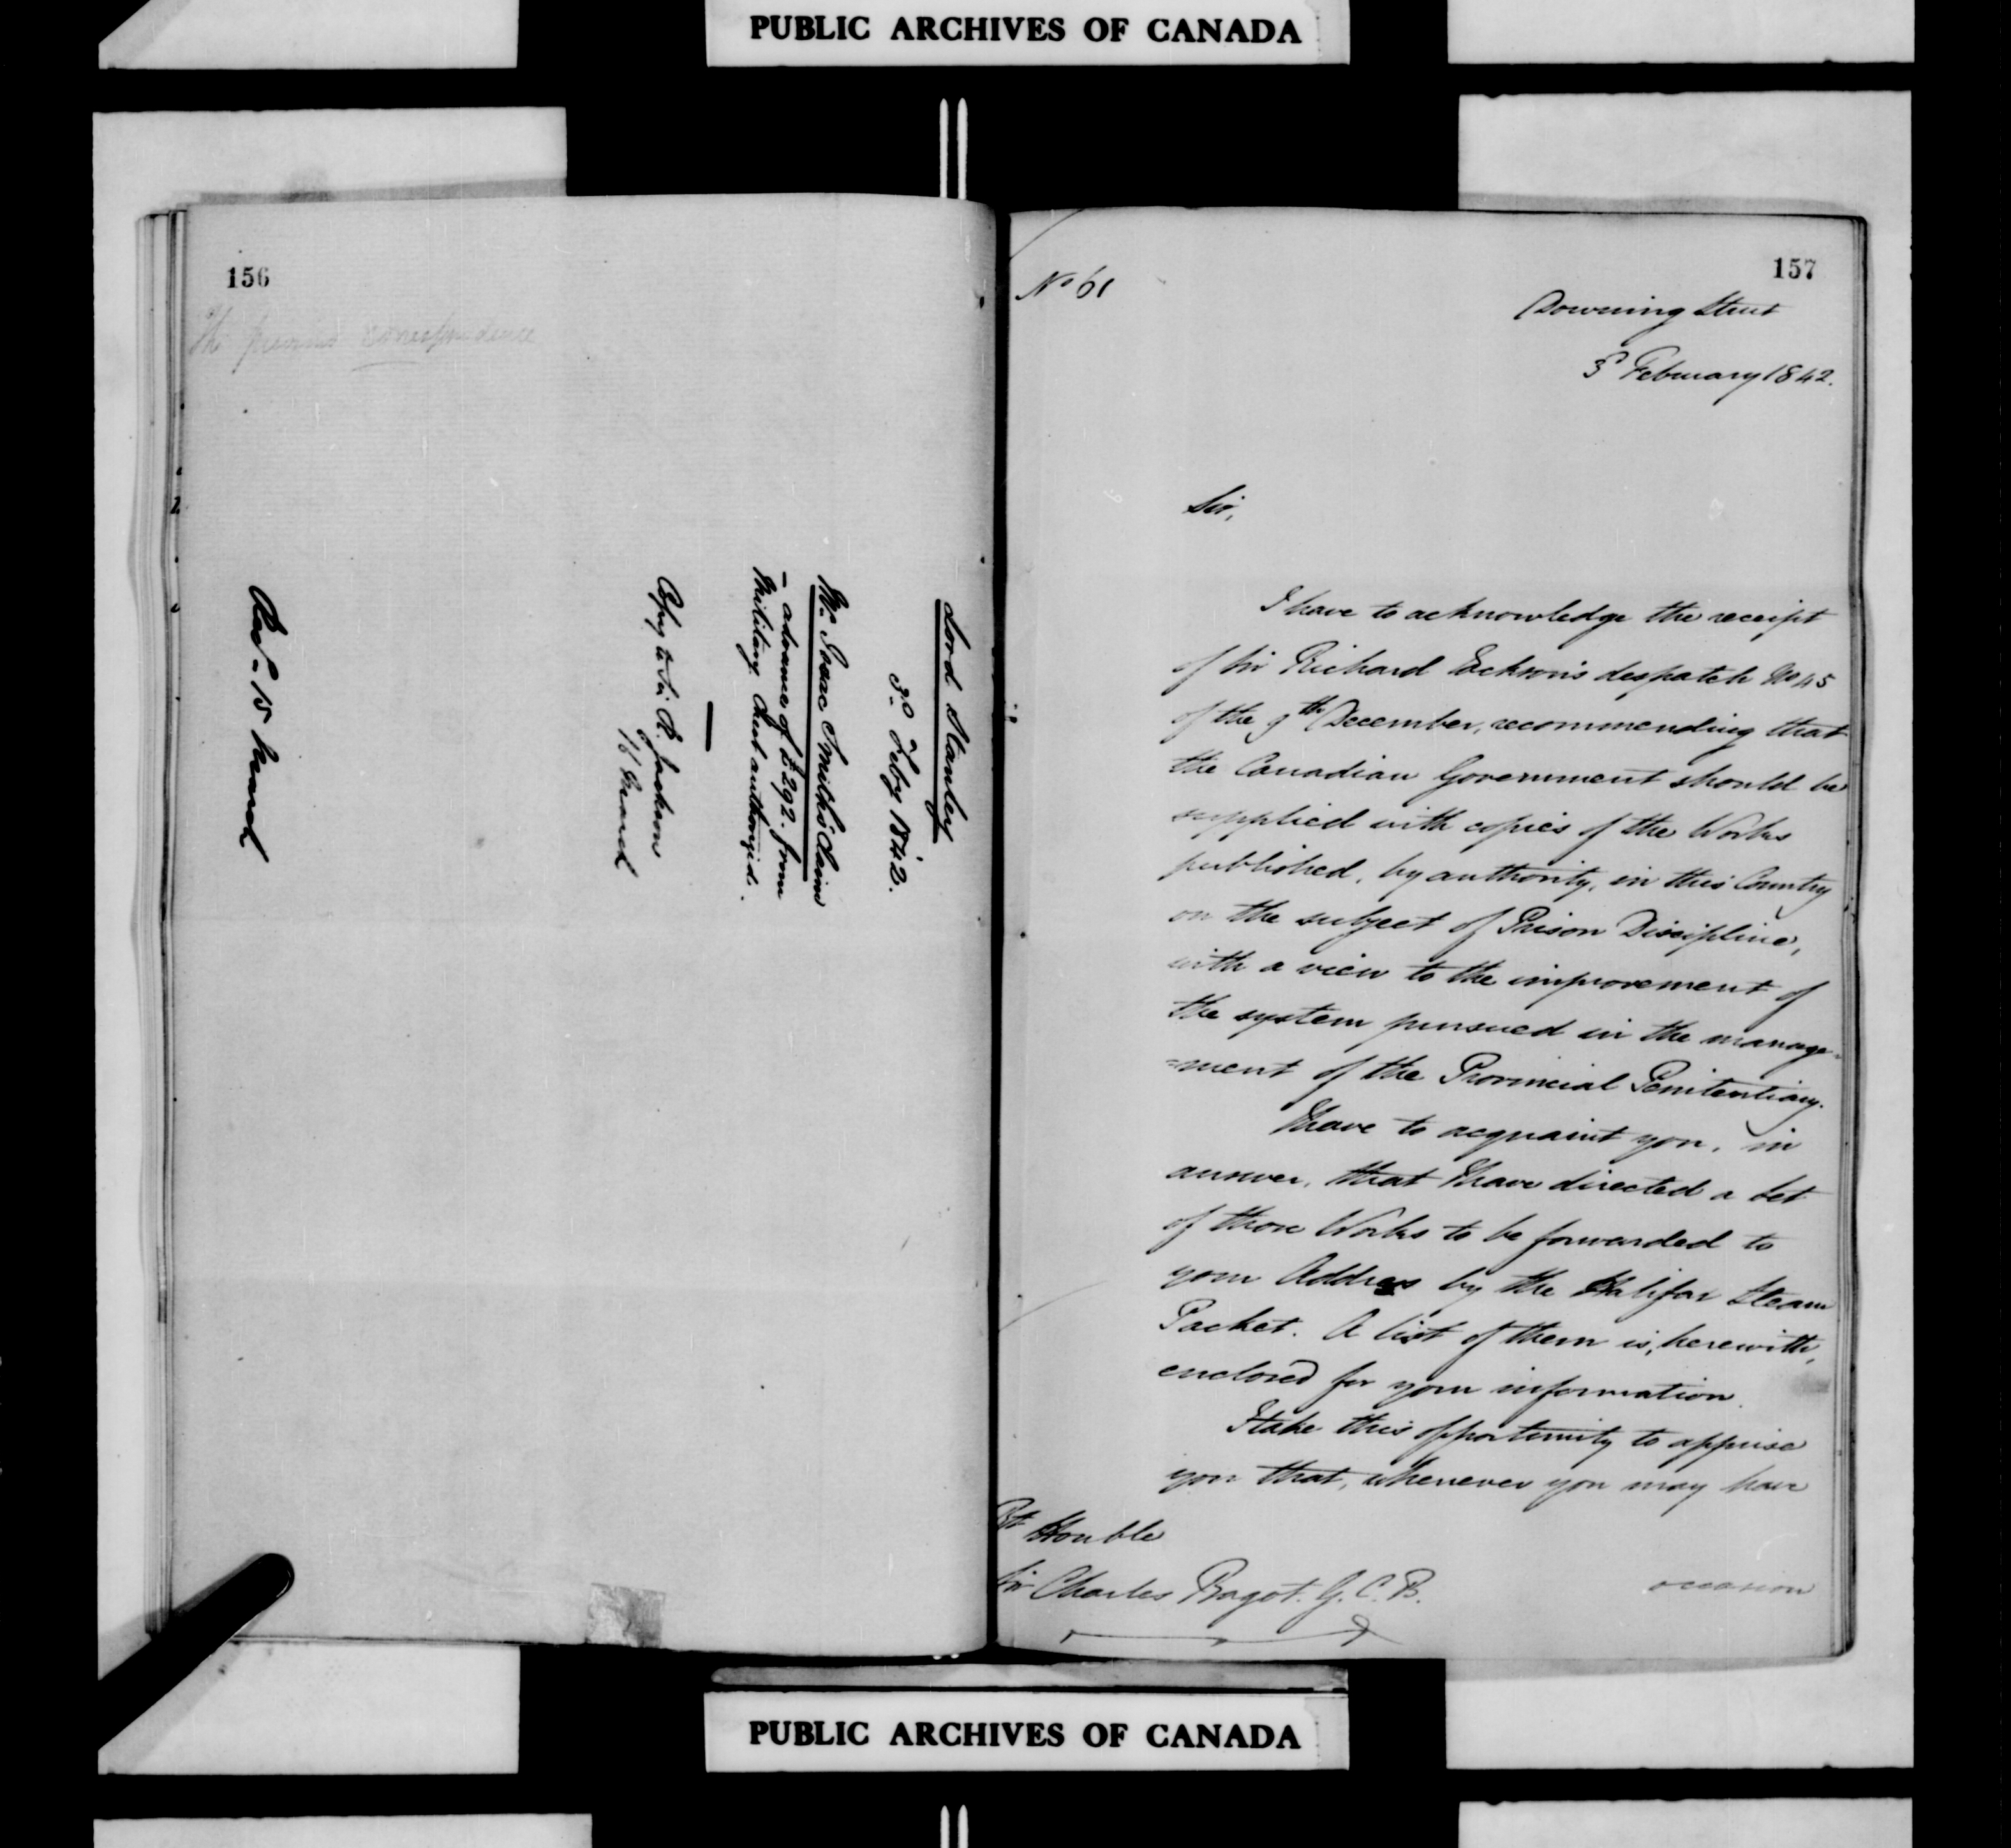 PUBLIC ARCHIVES OF CANADA
156
The previous correspondence
Lord Stanley
3d. Feby 1842.
Mr. Isaac Smith's Claim
- advance of £292. from
Military Chest authorized.
Copy to Sir R. Jackson
16 March
Recd. 15 March
157
No 61
Downing Street
3d February 1842.
Sir,
I have to acknowledge the receipt
of Sir Richard Jackson's despatch No 45
of the 9th December, recommending that
the Canadian Government should be
supplied with copies of the Works
published, by authority, in this Country
on the subject of Prison Discipline,
with a view to the improvement of
the system pursued in the manage-
=ment of the Provincial Penitentiary.
I have to acquaint you, in
answer, that I have directed a set
of those Works to be forwarded to
your Address by the Halifax Steam
Packet. A list of them is, herewith,
enclosed for your information.
I take this opportunity to apprise
you that, whenever you may have
occasion
Rt Honble
Sir Charles Bagot. G. C. B.
PUBLIC ARCHIVES OF CANADA